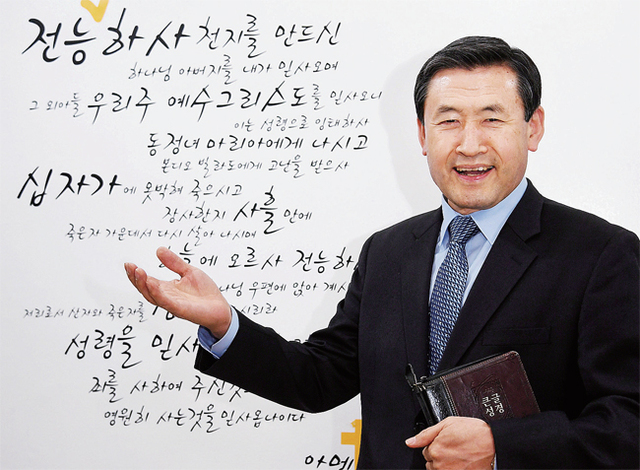 전능하사 천지를 만드신
하나님 아버지를 내가 믿사오며
그 외아들 우리주 예수그리스도를 믿사오니
이는 성령으로 잉태하사
동정녀 마리아에게 나시고
본디오 빌라도에게 고난을 받으사
십자가에 못박혀 죽으시고
장사한지 사흘 만에
죽은자 가운데서 다시 살아 나시며
늘에 오르사 전능하
나님 우편에 앉아 계시
저리로서 산자와 죽은자를 시리라
성령을 믿사
죄를 사하여 주신것
영원히 사는것을 믿사옵나이다
아메
큰글
성경